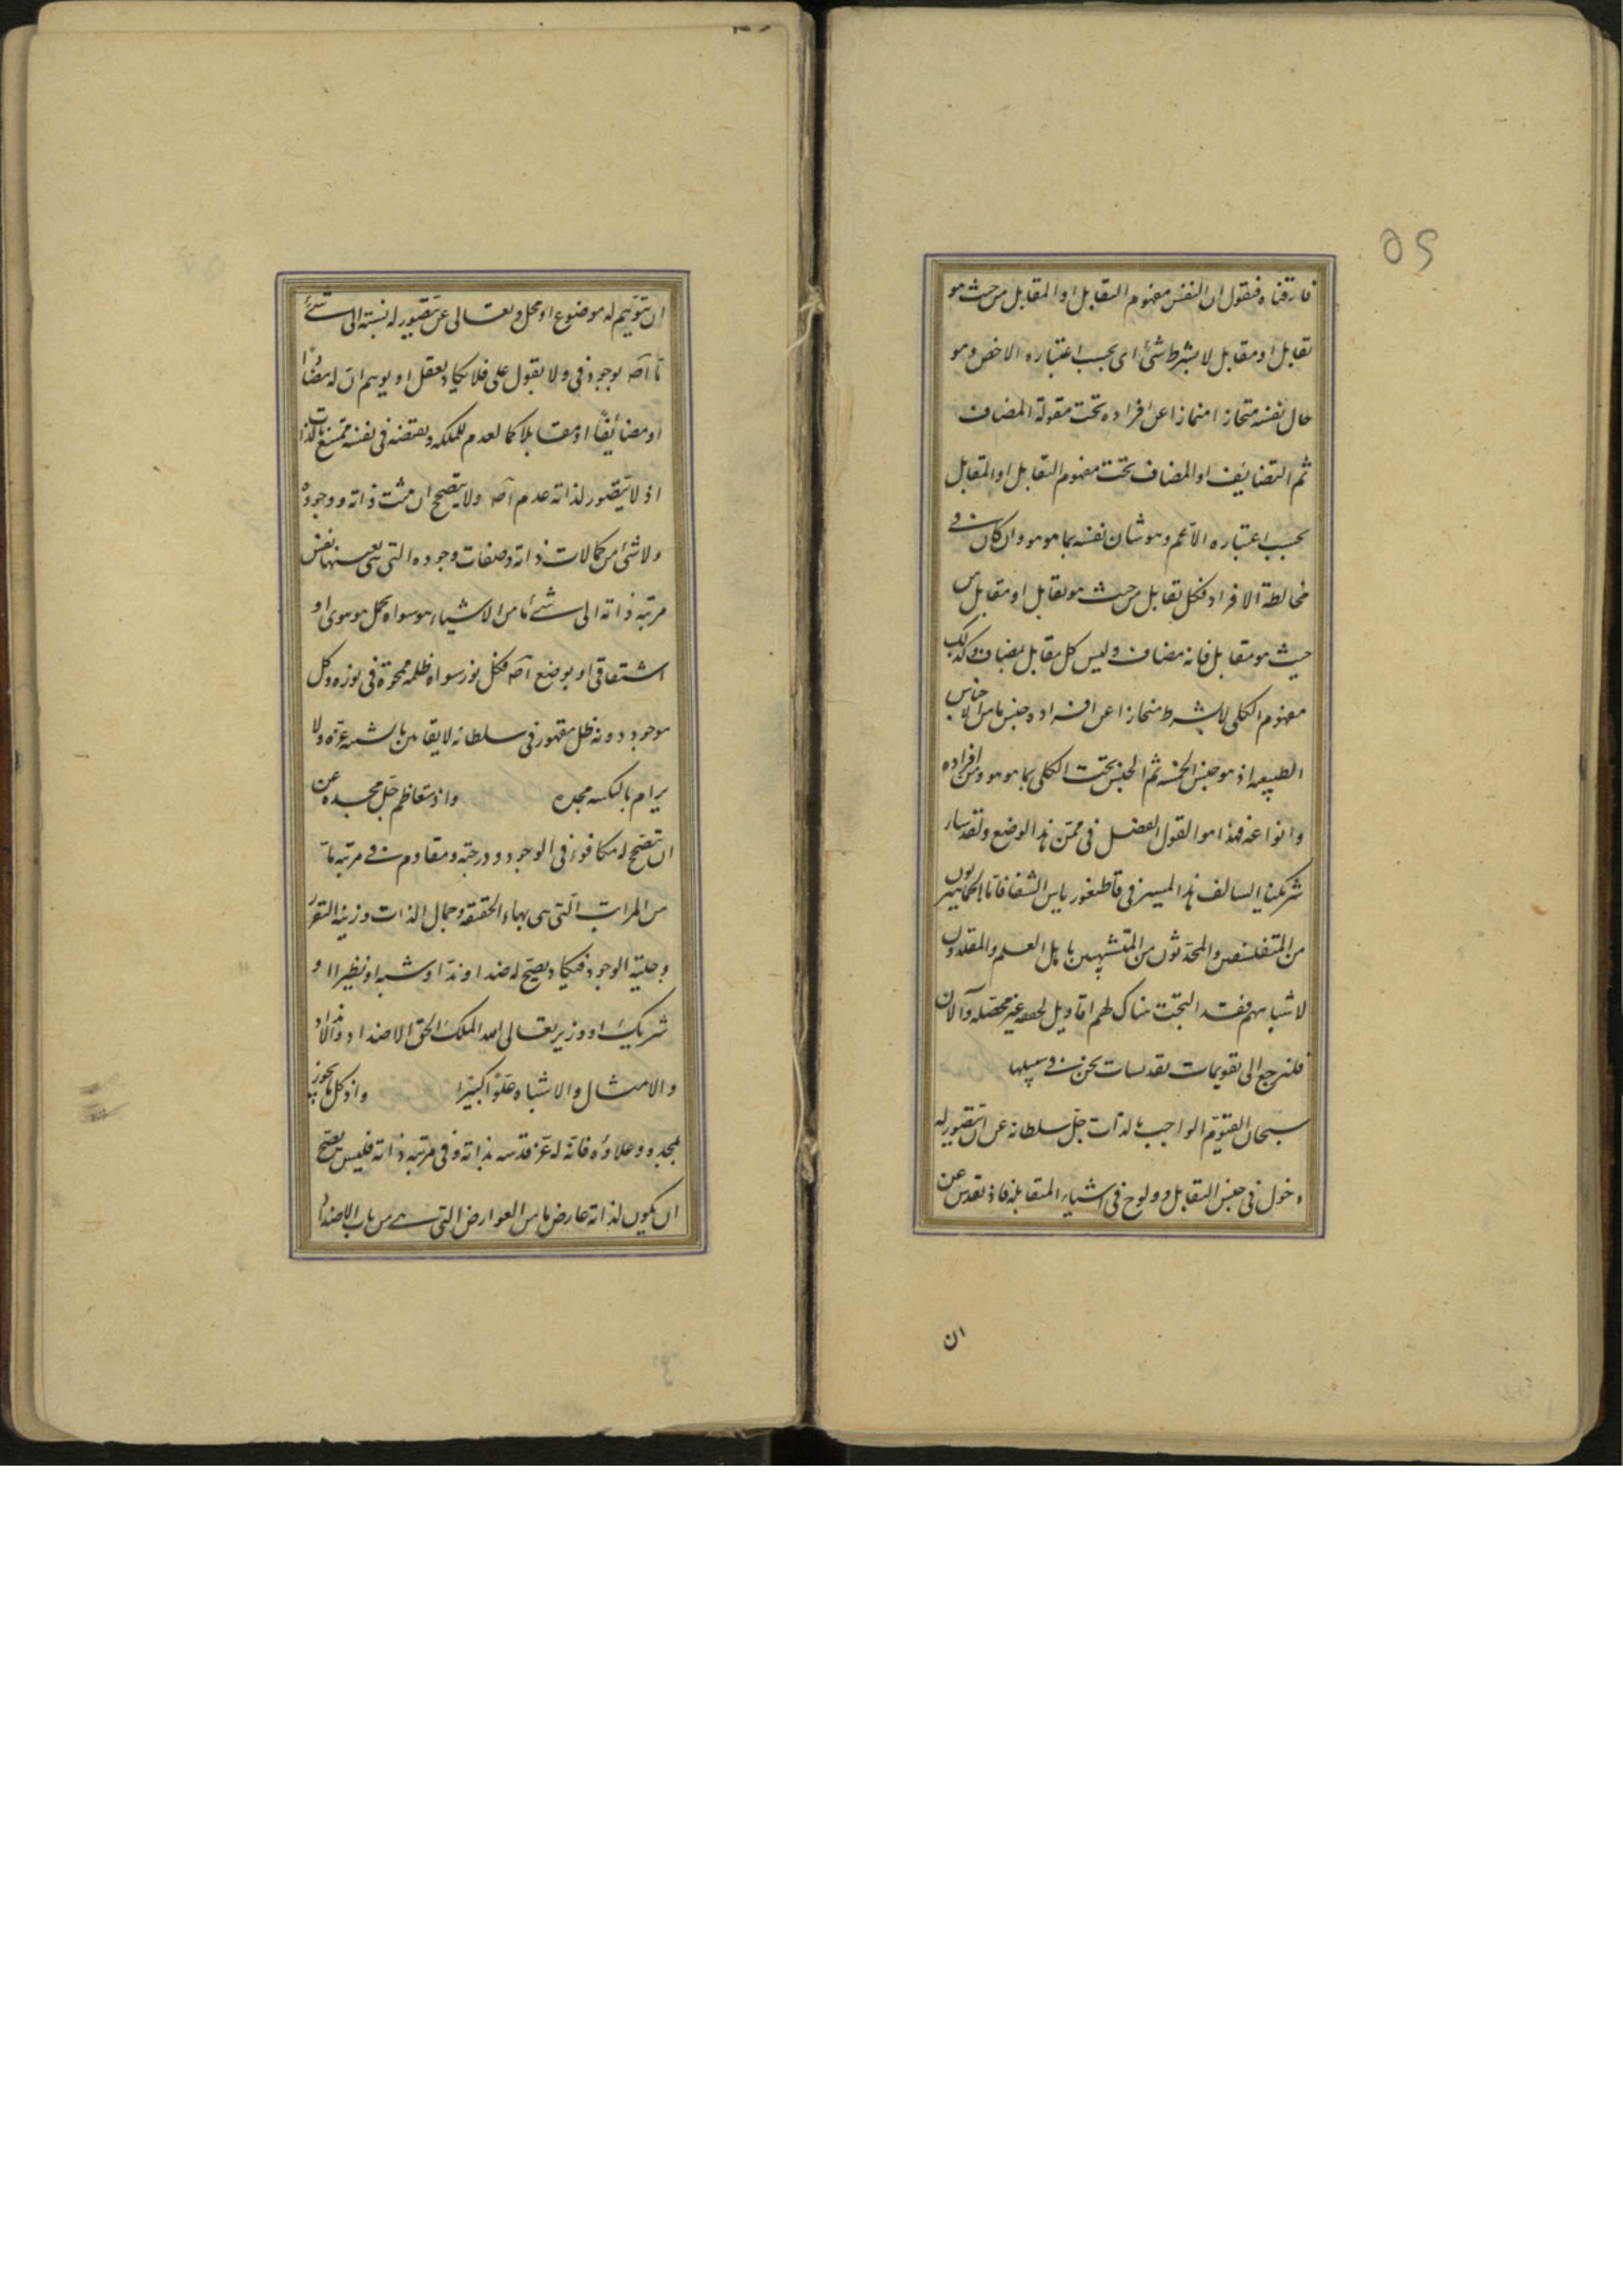 ٥٢
فارقناه فنقول ان النفس مفهوم التقابل او المقابل من حيث هو
تقابل او مقابل لا بشرط شئ اى بحسب اعتباره الاخص وهو
حال نفسه متحازا منمازا عن افراده تحت مقولة المضاف
ثم التضايف او المضاف تحت مفهوم التقابل او المتقابل
بحسب اعتباره الاعم وهو شان نفسه بما هو هو وان كان فى
مخالطة الافراد فكل تقابل من حيث هو تقابل او مقابل من
حيث هو مقابل فانه مضاف وليس كل مقابل بمضاف وكذلك
مفهوم الكلى لا بشرط منحازا عن افراده جنس ما من الاجناس
الطبيعه اذ هو جنس الخمسه ثم الجنس تحت الكلى بما هو هو ومن افراده
وانواعه فهذا هو القول الفصل فى ممتن هذا الوضع ولقد سار
شريكنا السالف هذا المسير فى قاطيغورياس الشفا فاما الجماهيريون
من المتفلسفين والمحدثون من المتشبهين باهل العلم والمقلدون
لاشباههم فقد التخت هناك لهم اقاويل لحقه غير محصله والآن
فلنرجع الى تقويمات تقديسات نحن فى سبيلها
سبحان القيوم الواجب بالذات جل سلطانه عن ان يتصور له
دخول فى جنس التقابل وولوج فى اشياء المتقابله فاذ تقدس عن
ان
ان يتوهم له موضوع او محل وتعالى عن يتصور له نسبته الى شئ
ما آصه بوجود فى ولا بقول على فلا يكاد يعقل او يوهم ان له مضادا
او مضائفا او مقابلا كما لعدم للملكه ونقيضه فى نفسه ممتنع بالذات
اذ لا يتصور لذاته عدم آصه ولا يتصحح ان يثبت ذاته ووجوده
ولا شئ من كمالات ذاته وصفات وجوده التى هى بعينها نفس
مرتبه ذاته الى شئ ما من الاشياء هو سواه بحمل هو هوى او
اشتقاقى او بوضع آصه فكل نور سواه ظلمه ممحوة فى نوره وكل
موجود دونه ظل مقهور فى سلطانه لا يقاس بالشبه عزه ولا
يرام بالنكسه مجده واذ تتعاظم جل مجده عن
ان يتصحح له مكافوء فى الوجود ودرجته ومقاوم فى مرتبه ما
من المراتب التى هى بهاء الحقيقه وجمال الذات وزينه التقرر
وحليته الوجود فيكاد يصح له ضدا وندا او شبها او نظيرا او
شريك او وزير تعالى الله الملك الحق الاضداد والانداد
والامثال والاشباه علوا كبيرا واذ كل ما يجوز
لمجده وعلاؤه فانه له عز قدسه بذاته وفى مرتبه ذاته فليس يصح
ان يكون لذاته عارض ما من العوارض التى هى من باب الاضداد